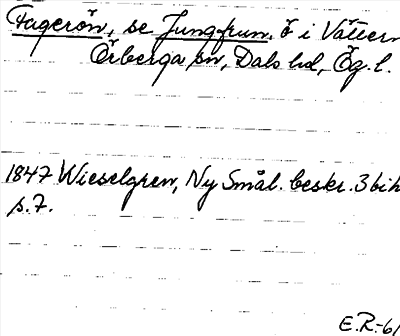 Fagerön, se Jungfrun, ö i Vättern
Örberga sn, Dals hd, Ög. l.
1847 Wieselgren, Ny Smål. beskr. 3 bih
s. 7.
E.R.-61